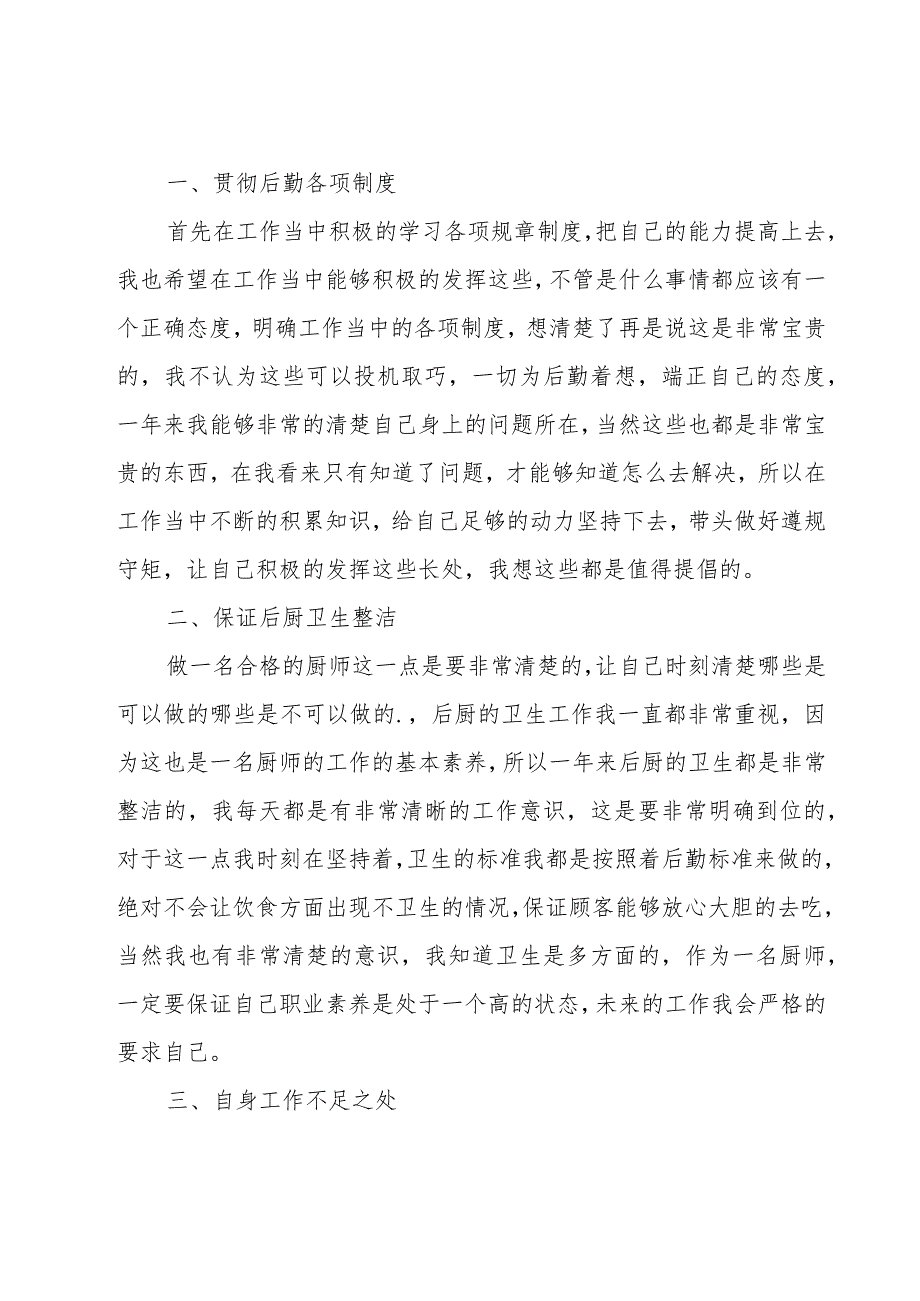 一、贯彻后勤各项制度
首先在工作当中积极的学习各项规章制度,把自己的能力提高上去,
我也希望在工作当中能够积极的发挥这些,不管是什么事情都应该有一
个正确态度，明确工作当中的各项制度，想清楚了再是说这是非常宝贵
的，我不认为这些可以投机取巧，一切为后勤着想，端正自己的态度,
一年来我能够非常的清楚自己身上的问题所在,当然这些也都是非常宝
贵的东西，在我看来只有知道了问题，才能够知道怎么去解决，所以在
工作当中不断的积累知识，给自己足够的动力坚持下去，带头做好遵规
守矩，让自己积极的发挥这些长处，我想这些都是值得提倡的。
二、保证后厨卫生整洁
做一名合格的厨师这一点是要非常清楚的,让自己时刻清楚哪些是
可以做的哪些是不可以做的.，后厨的卫生工作我一直都非常重视，因
为这也是一名厨师的工作的基本素养,所以一年来后厨的卫生都是非常
整洁的，我每天都是有非常清晰的工作意识，这是要非常明确到位的,
对于这一点我时刻在坚持着,卫生的标准我都是按照着后勤标准来做的,
绝对不会让饮食方面出现不卫生的情况,保证顾客能够放心大胆的去吃,
当然我也有非常清楚的意识，我知道卫生是多方面的，作为一名厨师,
一定要保证自己职业素养是处于一个高的状态,未来的工作我会严格的
要求自己。
三、自身工作不足之处